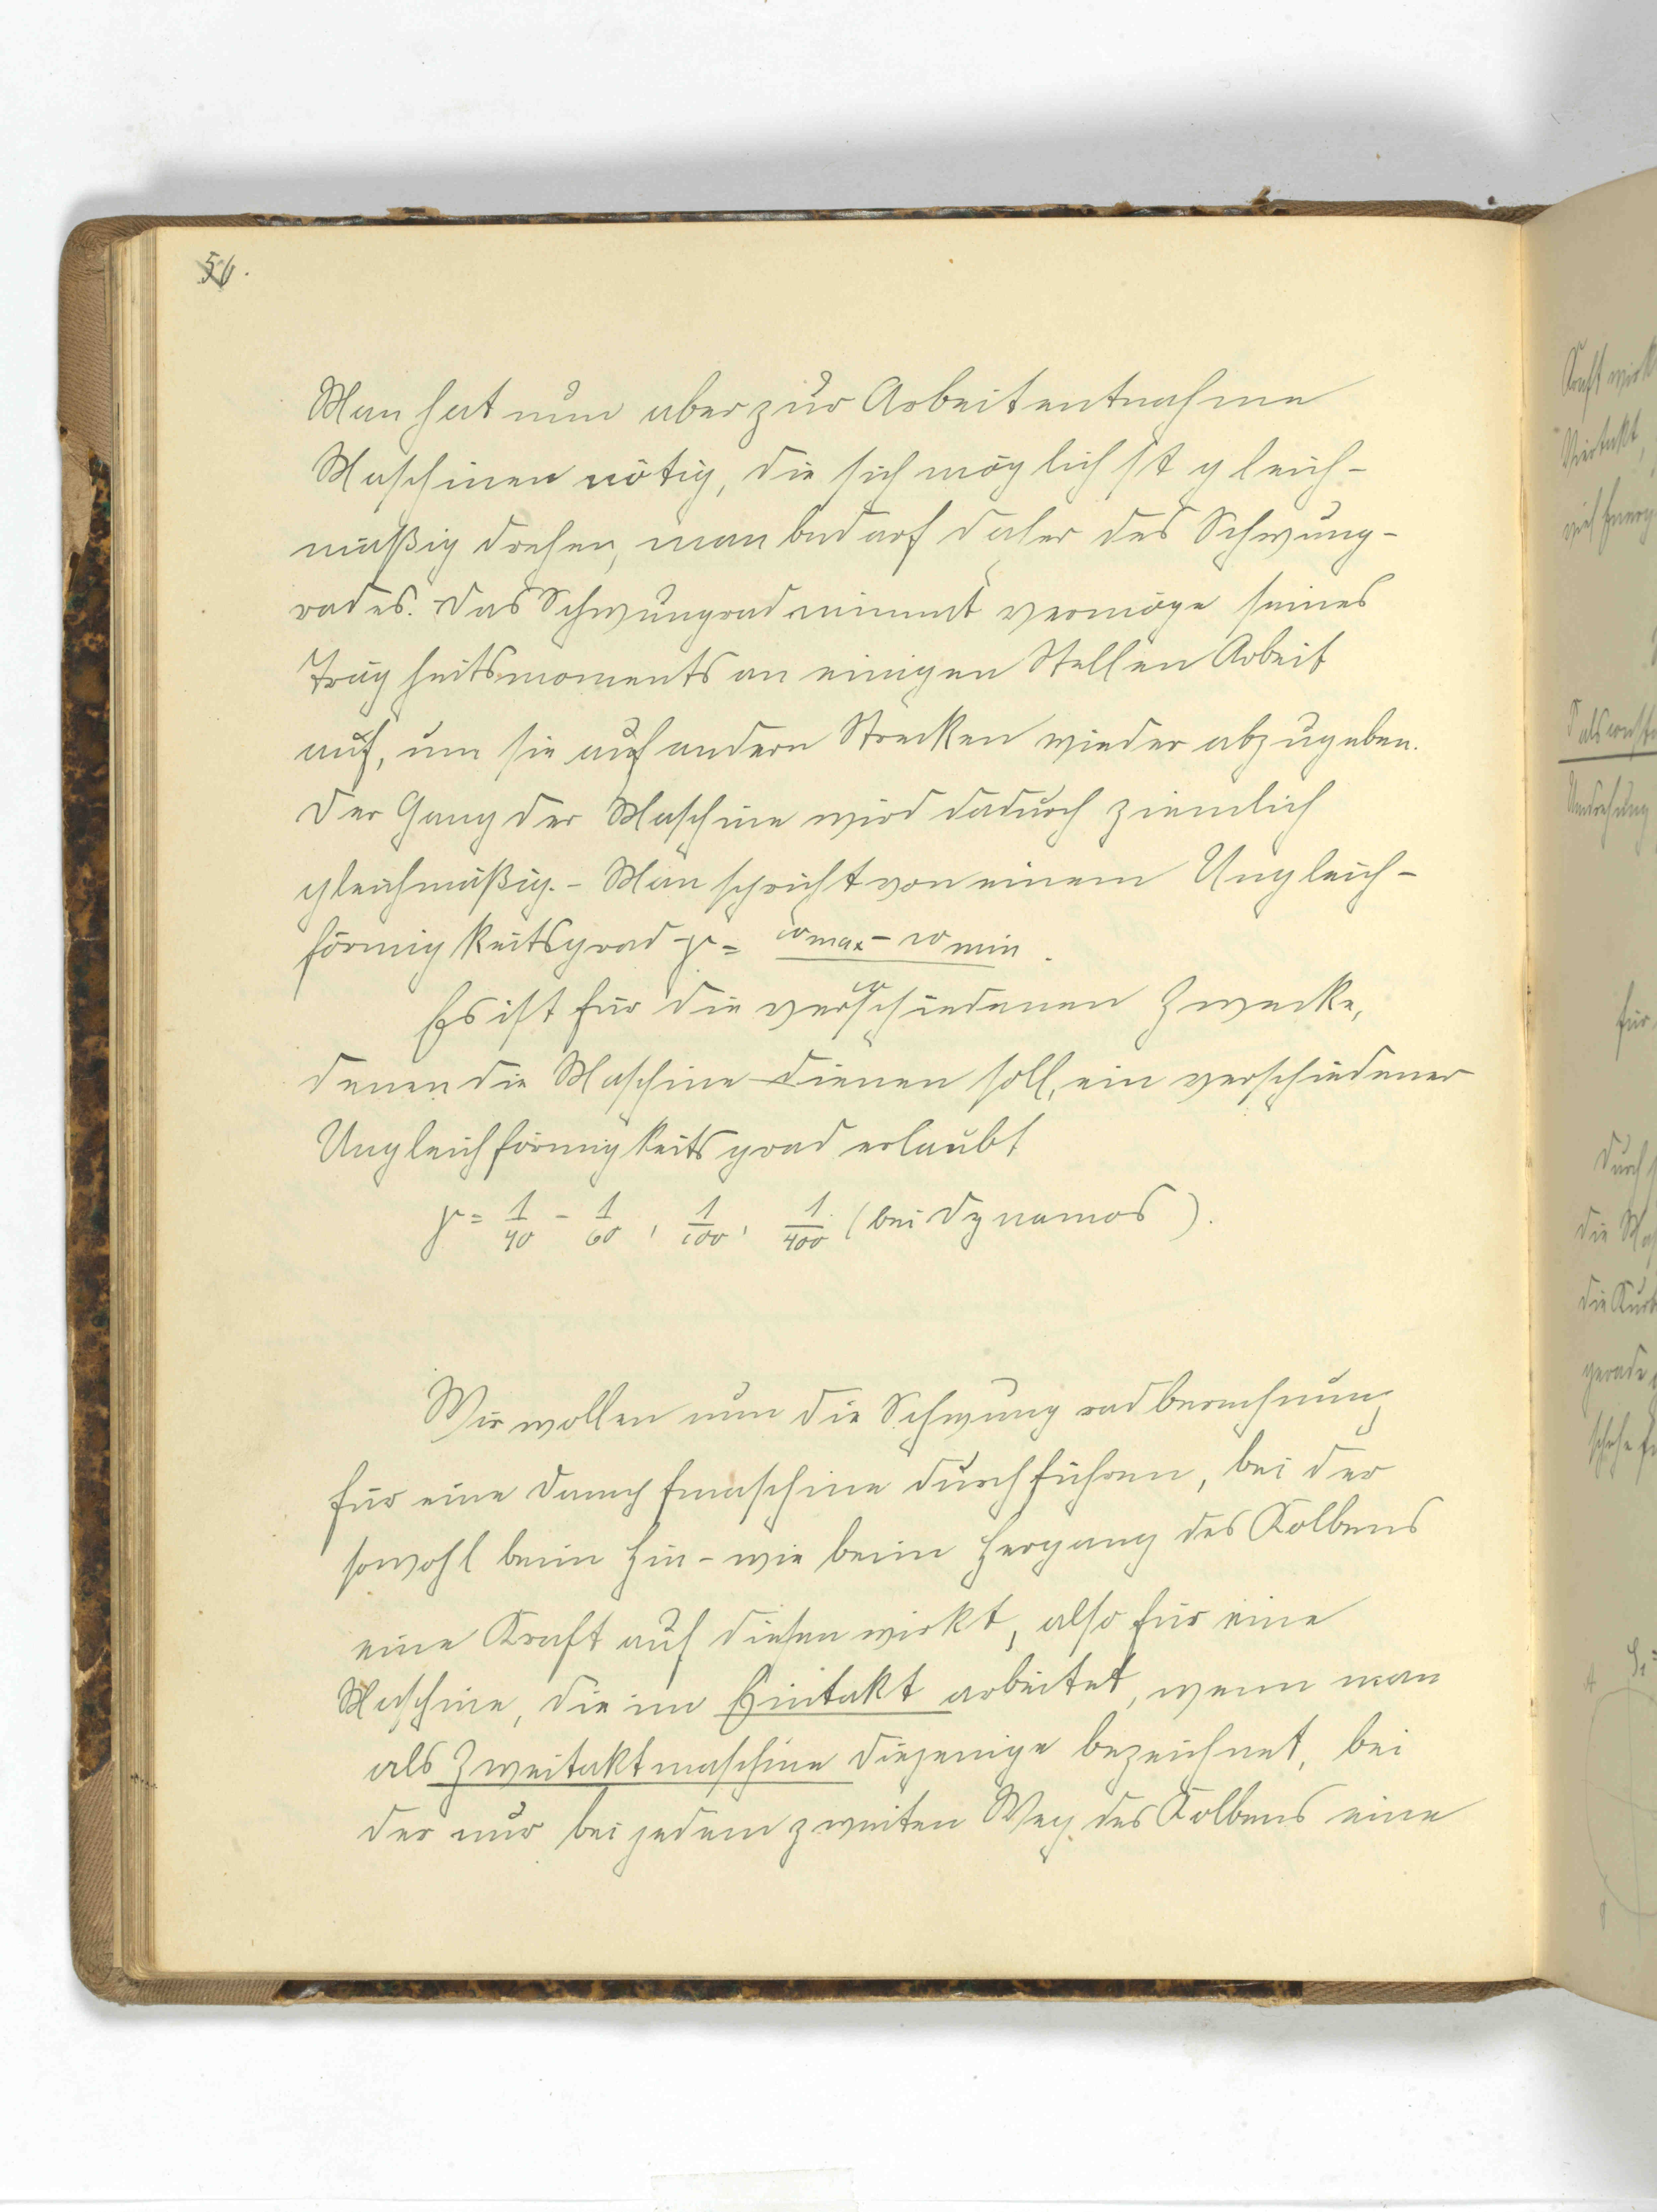 56.
Man hat nun aber zur Arbeitentnahme
Maschinen nötig, die sich möglichst gleich-
mäßig drehen, man bedarf daher des Schwung-
rades. Das Schwungrad nimmt vermöge seines
Trägheitsmoments an einigen Stellen Arbeit
auf, um sie auf andern Strecken wieder abzugeben.
Der Gang der Maschine wird dadurch ziemlich
gleichmäßig. - Man spricht von einem Ungleich-
förmigkeitsgrad γ = (ω max - ω min) / ω.
Es ist für die verschiedenen Zwecke,
denen die Maschine dienen soll, ein verschiedener
Ungleichförmigkeitsgrad erlaubt
γ = 1/40 - 1/60, 1/100, 1/400 (bei Dynamos).
Wir wollen nun die Schwungradberechnung
für eine Dampfmaschine durchführen, bei der
sowohl beim Hin- wie beim Hergang des Kolbens
eine Kraft auf diesen wirkt, also für eine
Maschine, die im Eintakt arbeitet, wenn man
als Zweitaktmaschine diejenige bezeichnet, bei
der nur bei jedem zweiten Weg des Kolbens eine
Kraft
Viertakt,
für
durch
die
gerade